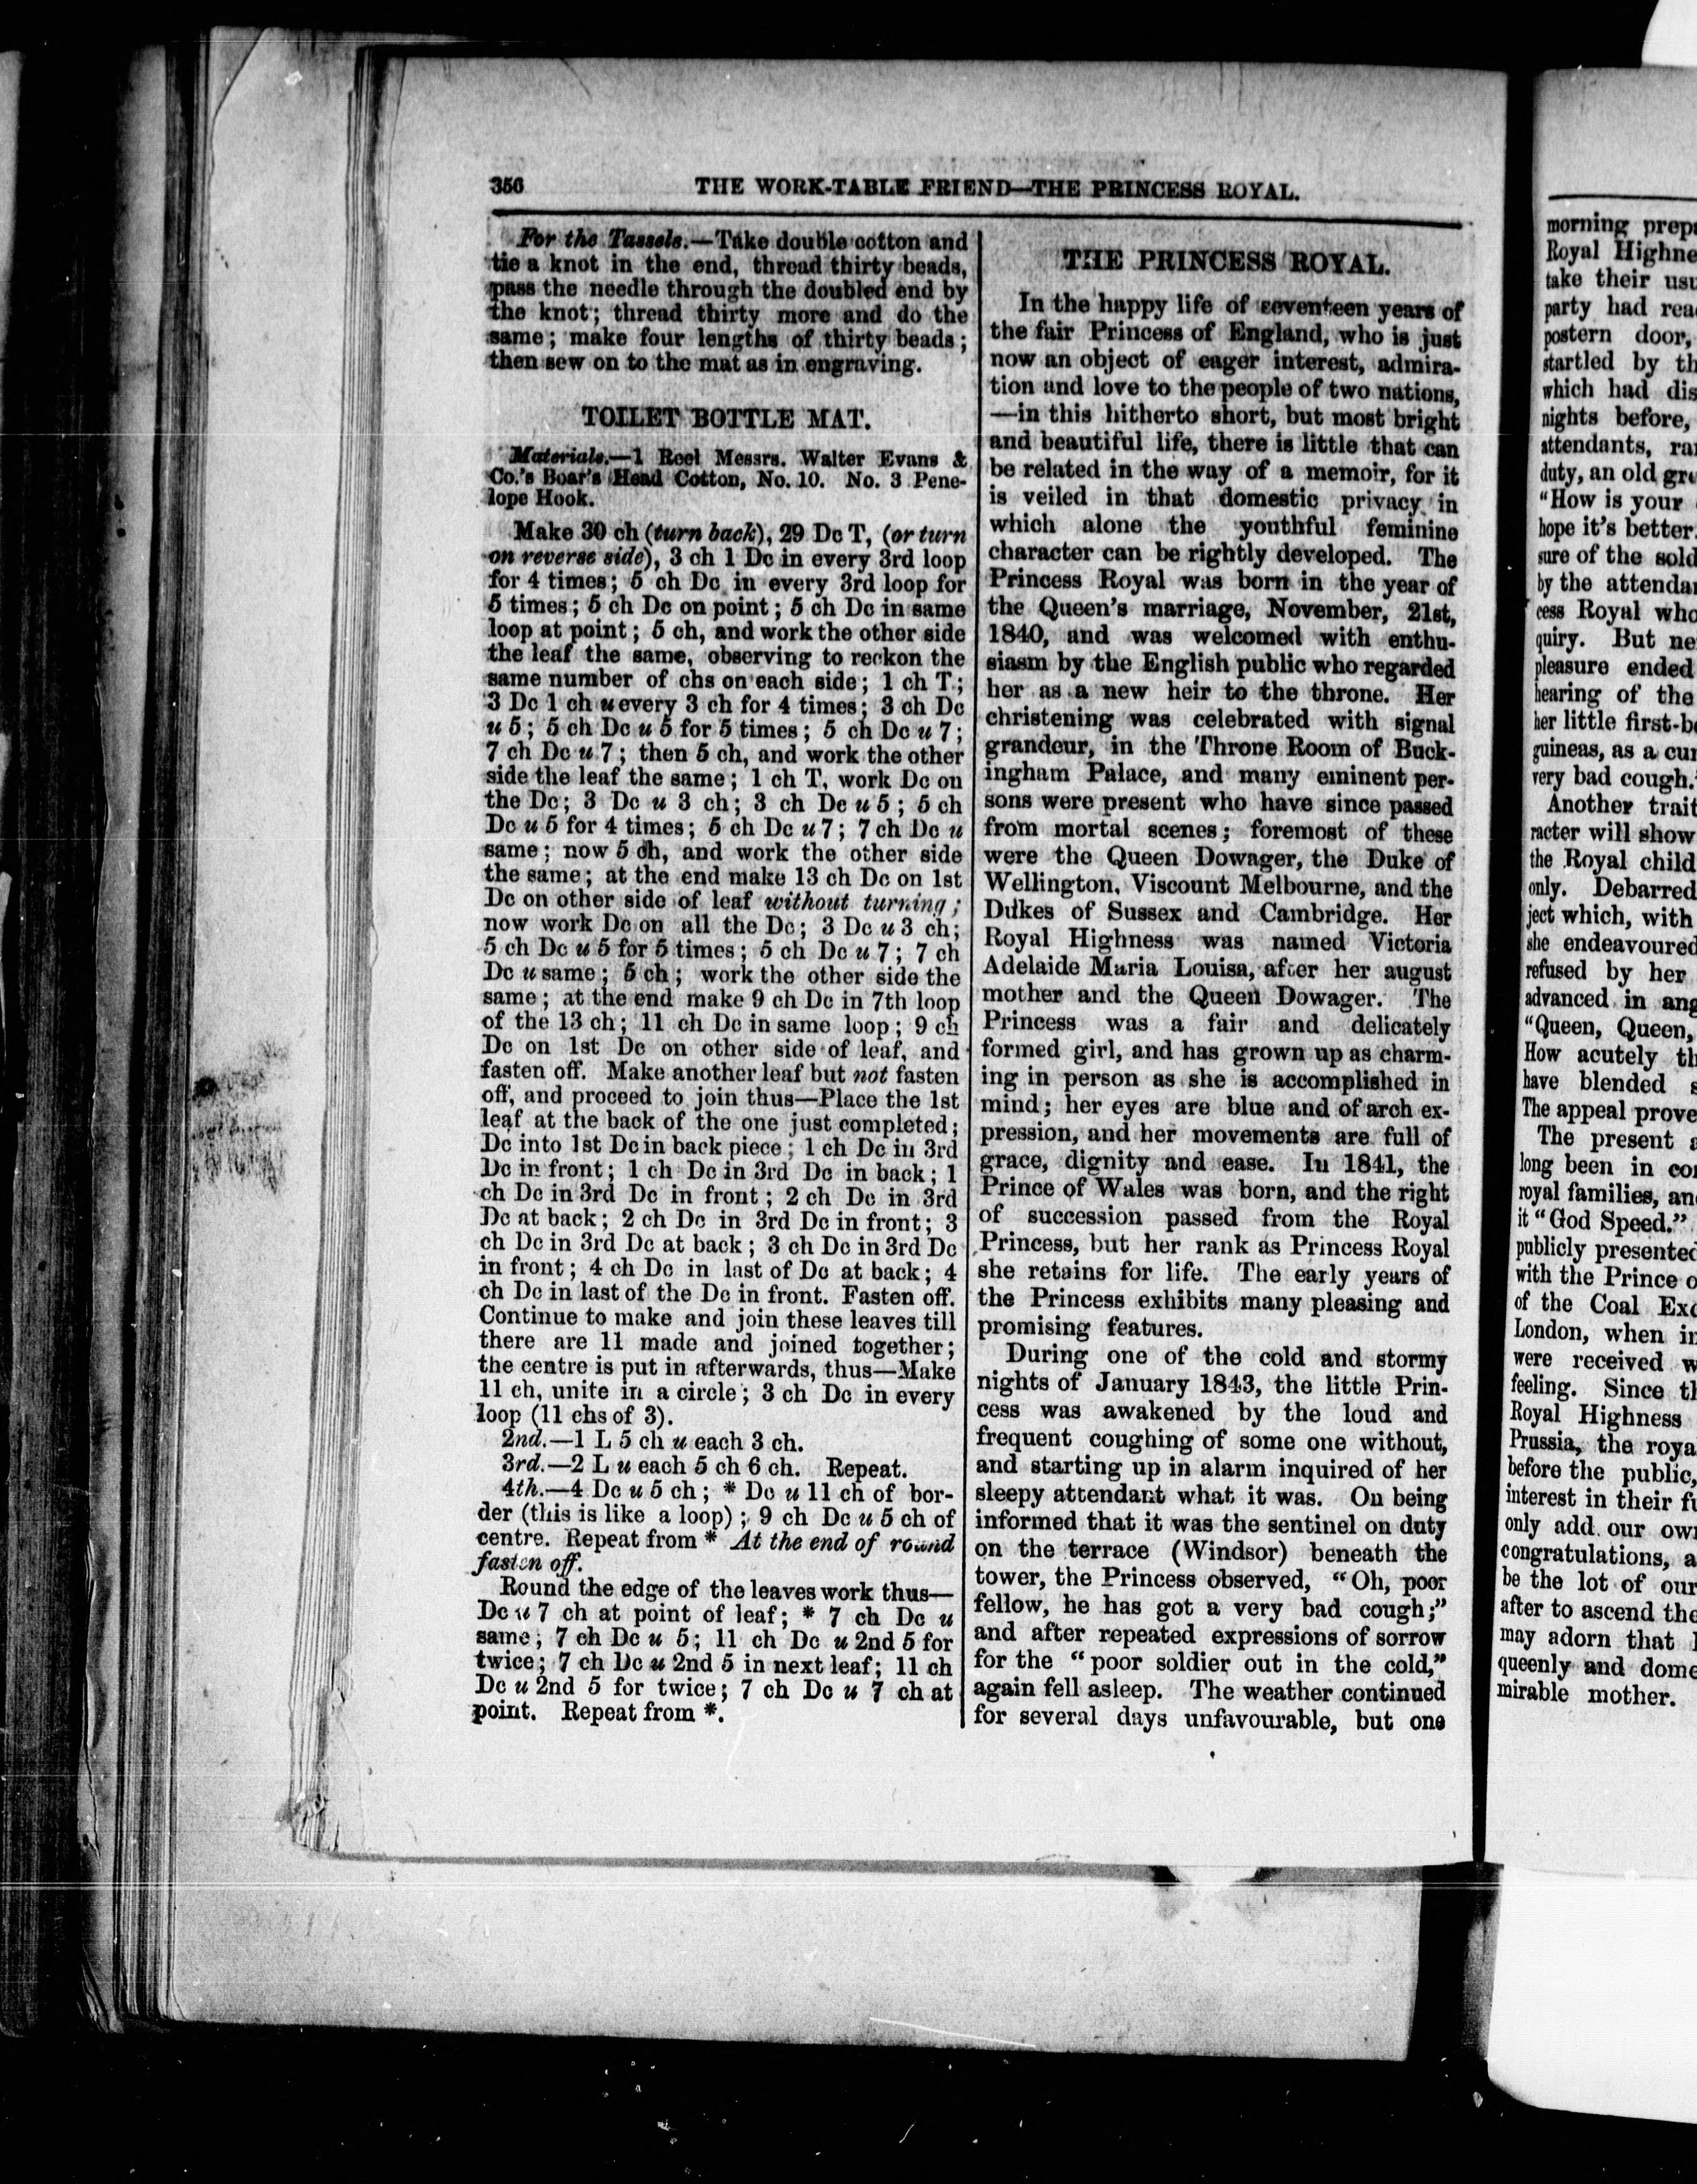 356
THE WORK-TABLE FRIEND—THE PRINCESS ROYAL.
For the Tassels.—Take double cotton and
tie a knot in the end, thread thirty beads,
pass the needle through the doubled end by
the knot; thread thirty more and do the
same; make four lengths of thirty beads;
then sew on to the mat as in engraving.
TOILET BOTTLE MAT.
Materials.—1 Reel Messrs. Walter Evans &
Co.'s Boar's Head Cotton, No. 10. No. 3 Pene-
lope Hook.
Make 30 ch (turn back), 29 Dc T, (or turn
on reverse side), 3 ch 1 Dc in every 3rd loop
for 4 times; 5 ch Dc in every 3rd loop for
5 times; 5 ch Dc on point; 5 ch Dc in same
loop at point; 5 ch, and work the other side
the leaf the same, observing to reckon the
same number of chs on each side; 1 ch T.;
3 Dc 1 ch u every 3 ch for 4 times; 3 ch Dc
u 5; 5 ch Dc u 5 for 5 times; 5 ch Dc u 7;
7 ch Dc u 7; then 5 ch, and work the other
side the leaf the same; 1 ch T, work Dc on
the Dc; 3 Dc u 3 ch; 3 ch Dc u 5; 5 ch
Dc u 5 for 4 times; 5 ch Dc u 7; 7 ch Dc u
same; now 5 ch, and work the other side
the same; at the end make 13 ch Dc on 1st
Dc on other side of leaf without turning;
now work Dc on all the Dc; 3 Dc u 3 ch;
5 ch Dc u 5 for 5 times; 5 ch Dc u 7; 7 ch
Dc u same; 5 ch; work the other side the
same; at the end make 9 ch Dc in 7th loop
of the 13 ch; 11 ch Dc in same loop; 9 ch
Dc on 1st Dc on other side of leaf, and
fasten off. Make another leaf but not fasten
off, and proceed to join thus—Place the 1st
leaf at the back of the one just completed;
Dc into 1st Dc in back piece; 1 ch Dc in 3rd
Dc in front; 1 ch Dc in 3rd Dc in back; 1
ch Dc in 3rd Dc in front; 2 ch Dc in 3rd
Dc at back; 2 ch Dc in 3rd Dc in front; 3
ch Dc in 3rd Dc at back; 3 ch Dc in 3rd Dc
in front; 4 ch Dc in last of Dc at back; 4
ch Dc in last of the Dc in front. Fasten off.
Continue to make and join these leaves till
there are 11 made and joined together;
the centre is put in afterwards, thus—Make
11 ch, unite in a circle; 3 ch Dc in every
loop (11 chs of 3).
2nd.—1 L 5 ch u each 3 ch.
3rd.—2 L u each 5 ch 6 ch. Repeat.
4th.—4 Dc u 5 ch; * Dc u 11 ch of bor-
der (this is like a loop); 9 ch Dc u 5 ch of
centre. Repeat from * At the end of round
fasten off.
Round the edge of the leaves work thus—
Dc u 7 ch at point of leaf; * 7 ch Dc u
same; 7 ch Dc u 5; 11 ch Dc u 2nd 5 for
twice; 7 ch Dc u 2nd 5 in next leaf; 11 ch
Dc u 2nd 5 for twice; 7 ch Dc u 7 ch at
point. Repeat from *.
THE PRINCESS ROYAL.
In the happy life of seventeen years of
the fair Princess of England, who is just
now an object of eager interest, admira-
tion and love to the people of two nations,
—in this hitherto short, but most bright
and beautiful life, there is little that can
be related in the way of a memoir, for it
is veiled in that domestic privacy in
which alone the youthful feminine
character can be rightly developed. The
Princess Royal was born in the year of
the Queen's marriage, November, 21st,
1840, and was welcomed with enthu-
siasm by the English public who regarded
her as a new heir to the throne. Her
christening was celebrated with signal
grandeur, in the Throne Room of Buck-
ingham Palace, and many eminent per-
sons were present who have since passed
from mortal scenes; foremost of these
were the Queen Dowager, the Duke of
Wellington, Viscount Melbourne, and the
Dukes of Sussex and Cambridge. Her
Royal Highness was named Victoria
Adelaide Maria Louisa, after her august
mother and the Queen Dowager. The
Princess was a fair and delicately
formed girl, and has grown up as charm-
ing in person as she is accomplished in
mind; her eyes are blue and of arch ex-
pression, and her movements are full of
grace, dignity and ease. In 1841, the
Prince of Wales was born, and the right
of succession passed from the Royal
Princess, but her rank as Princess Royal
she retains for life. The early years of
the Princess exhibits many pleasing and
promising features.
During one of the cold and stormy
nights of January 1843, the little Prin-
cess was awakened by the loud and
frequent coughing of some one without,
and starting up in alarm inquired of her
sleepy attendant what it was. On being
informed that it was the sentinel on duty
on the terrace (Windsor) beneath the
tower, the Princess observed, "Oh, poor
fellow, he has got a very bad cough;"
and after repeated expressions of sorrow
for the "poor soldier out in the cold,"
again fell asleep. The weather continued
for several days unfavourable, but one
morning
Royal
take their
party had
postern door,
startled by
which had
nights before,
attendants,
duty, an old
"How is your
hope it's better.
sure of the
by the
cess Royal
quiry. But
pleasure ended
hearing of the
her little
guineas, as a
very bad cough.
Another trait
racter will show
the Royal child
only. Debarred
ject which, with
she endeavoured
refused by her
advanced in
"Queen, Queen,
How acutely
have blended
The appeal
The present
long been in
royal families,
it "God Speed."
publicly
with the Prince
of the Coal
London, when
were received
feeling. Since
Royal Highness
Prussia, the
before the public,
interest in their
only add our
congratulations,
be the lot of our
after to ascend
may adorn that
queenly and
mirable mother.